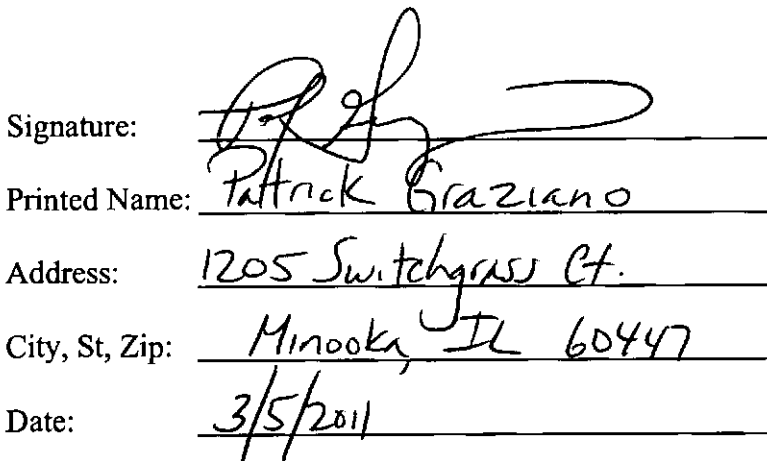 Signature:
Printed Name: Pattrick Graziano
Address: 1205 Switchgrass Ct.
City, St, Zip: Minooka, IL 60447
Date: 3/5/2011